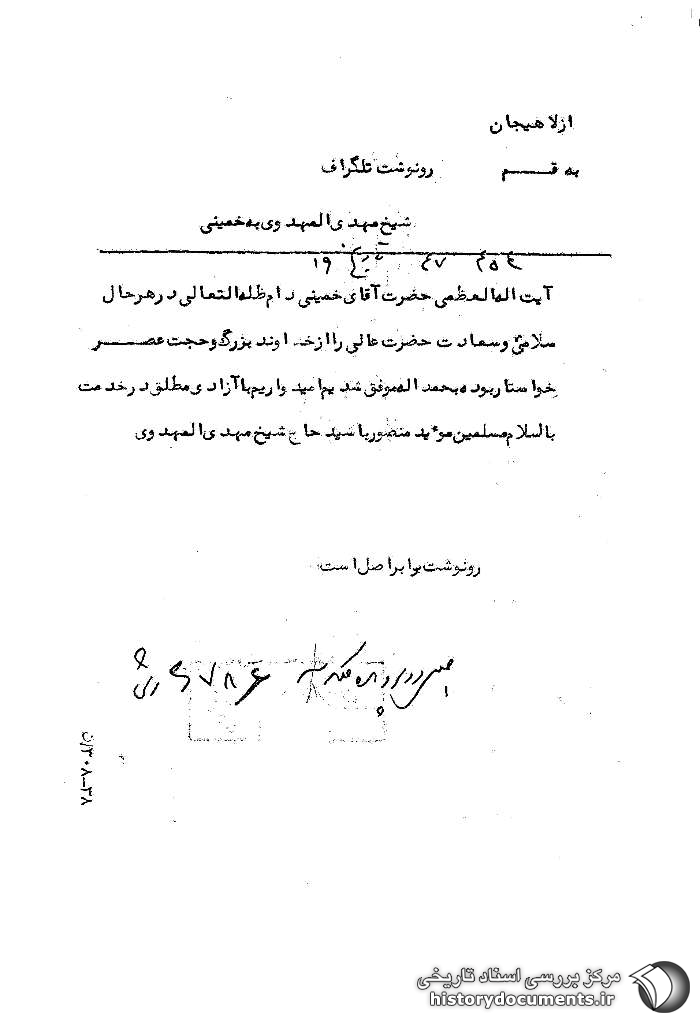 از لاهیجان
به قـــــم رونوشت تلگراف
شیخ مهدی المهدوی به خمینی
۴۵۴ ۴۷ تاریخ ۱۹
آیت اله العظمی حضرت آقای خمینی دام ظله التعالی در هر حال
سلامتی و سعادت حضرت عالی را از خداوند بزرگ و حجت عصـــر
خواستار بوده بحمد اله موفق شدیم امیدواریم با آزادی مطلق در خدمت
بالسلام مسلمین موئید منصور باشید حاج شیخ مهدی المهدوی
رونوشت برابر اصل است
اصل در پرونده
۶۷۸۴
۳۰۸-۳۸/ن
مرکز بررسی اسناد تاریخی
historydocuments.ir